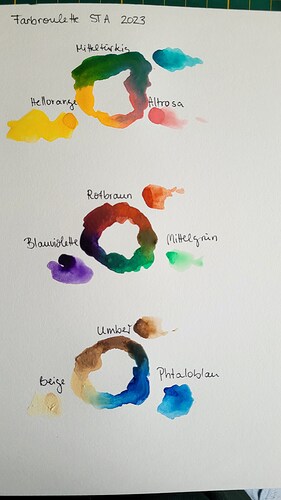 Farbroulette STA 2023
Mitteltürkis
Hellorange
Altrosa
Rotbraun
Blauviolette
Mittelgrün
Umber
Beige
Phtaloblau